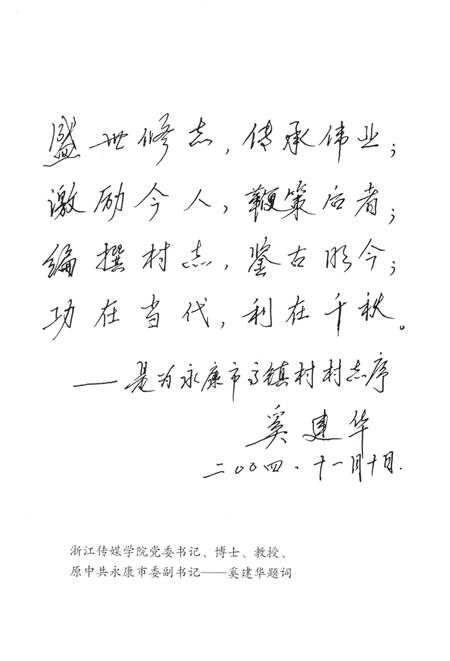 盛世修志，传承伟业；
激励今人，鞭策后者；
编撰村志，鉴古明今；
功在当代，利在千秋。
——是为永康市高镇村村志序
奚建华
二〇〇四．十一月十日．
浙江传媒学院党委书记、博士、教授、
原中共永康市委副书记——奚建华题词